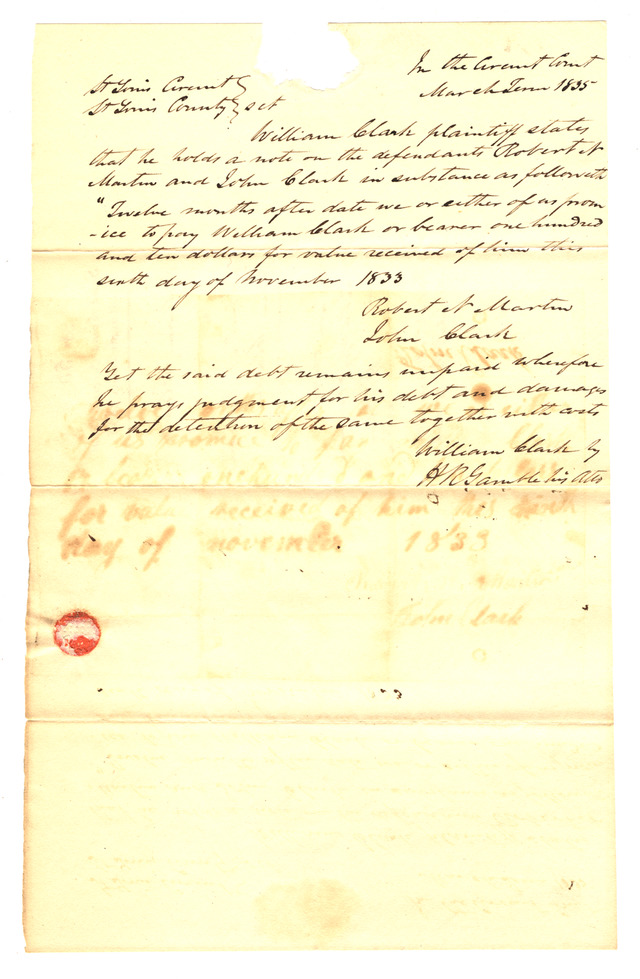 In the Circuit Court
March Term 1835
St Louis Circuit }
St Louis County } sct
William Clark plaintiff states
that he holds a note on the defendants Robert N
Martin and John Clark in substance as followeth
"Twelve months after date we or either of us prom
-ice to pay William Clark or bearer one hundred
and ten dollars for value received of him this
sixth day of November 1833
Robert N Martin
John Clark
Yet the said debt remains unpaid wherefore
he prays judgment for his debt and damages
for the detention of the same together with costs
William Clark by
H R Gamble his Atto
for value received of him this sixth
day of november 1833
John Clark